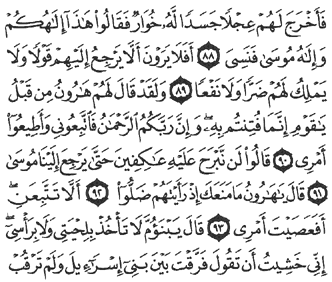 فَأَخْرَجَ لَهُمْ عِجْلًا جَسَدًا لَّهُۥ خُوَارٌ فَقَالُوا۟ هَـٰذَآ إِلَـٰهُكُمْ
وَإِلَـٰهُ مُوسَىٰ فَنَسِىَ ٨٨ أَفَلَا يَرَوْنَ أَلَّا يَرْجِعُ إِلَيْهِمْ قَوْلًا وَلَا
يَمْلِكُ لَهُمْ ضَرًّا وَلَا نَفْعًا ٨٩ وَلَقَدْ قَالَ لَهُمْ هَـٰرُونُ مِن قَبْلُ
يَـٰقَوْمِ إِنَّمَا فُتِنتُم بِهِۦ ۖ وَإِنَّ رَبَّكُمُ ٱلرَّحْمَـٰنُ فَٱتَّبِعُونِى وَأَطِيعُوٓا۟
أَمْرِى ٩٠ قَالُوا۟ لَن نَّبْرَحَ عَلَيْهِ عَـٰكِفِينَ حَتَّىٰ يَرْجِعَ إِلَيْنَا مُوسَىٰ
٩١ قَالَ يَـٰهَـٰرُونُ مَا مَنَعَكَ إِذْ رَأَيْتَهُمْ ضَلُّوٓا۟ ٩٢ أَلَّا تَتَّبِعَنِ ۖ
أَفَعَصَيْتَ أَمْرِى ٩٣ قَالَ يَبْنَؤُمَّ لَا تَأْخُذْ بِلِحْيَتِى وَلَا بِرَأْسِىٓ ۖ
إِنِّى خَشِيتُ أَن تَقُولَ فَرَّقْتَ بَيْنَ بَنِىٓ إِسْرَٰٓءِيلَ وَلَمْ تَرْقُبْ